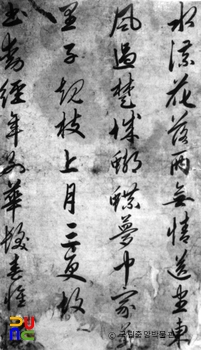 水流花落兩無情送盡東
風過楚城蝴蝶夢中家
里子規枝上月三更故
書動經年絕華髮春惟
국립중앙박물관